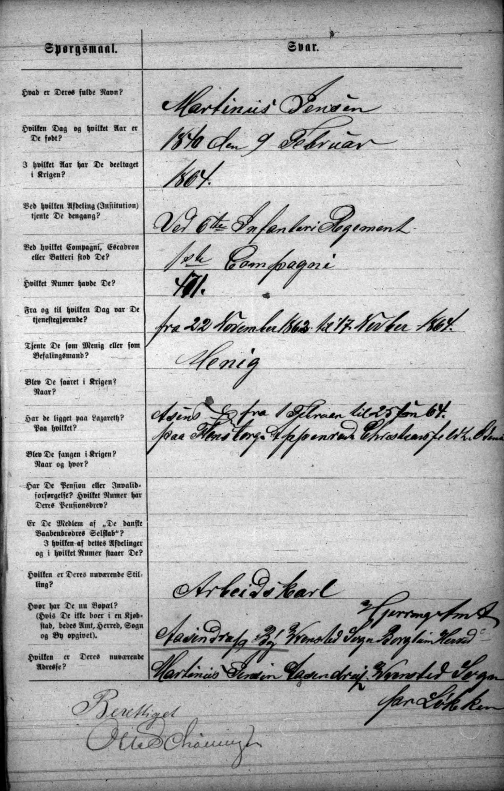 Spørgsmaal.
Svar.
Hvad er Deres fulde Navn?
Martinus Jensen
Hvilken Dag og hvilket Aar er
De født?
1840 den 9 Februar
I hvilket Aar har De deeltaget
i Krigen?
1864.
Ved hvilken Afdeling (Institution)
tjente De dengang?
Ved 6te Infanteri Regement.
Ved hvilket Compagni, Escadron
eller Batteri stod De?
1ste Compagni
Hvilket Numer havde De?
471.
Fra og til hvilken Dag var De
tjenestgjørende?
fra 22 November 1862 til 17 Novber 1864.
Tjente De som Menig eller som
Befalingsmand?
Menig
Blev De saaret i Krigen?
Naar?
Har De ligget paa Lazareth?
Paa hvilket?
fra 1 Februar til 25 64.
paa Flensborg Appenrade Christiansfeld
Blev De fangen i Krigen?
Naar og hvor?
Har De Pension eller Invalid-
forsørgelse? Hvilket Numer har
Deres Pensionsbrev?
Er De Medlem af „De danske
Vaabenbrødres Selskab"?
I hvilken af dettes Afdelinger
og i hvilket Numer staaer De?
Hvilken er Deres nuværende Stil-
ling?
Arbeidskarl
Hvor har De nu Bopæl?
(Hvis De ikke boer i en Kjøb-
stad, bedes Amt, Herred, Sogn
og By opgivet).
Hjørring Amt
By Wrensted Sogn Børglum Herred
Hvilken er Deres nuværende
Adresse?
Martinus Jensen Wrensted Sogn
par Løkken
Berettiget